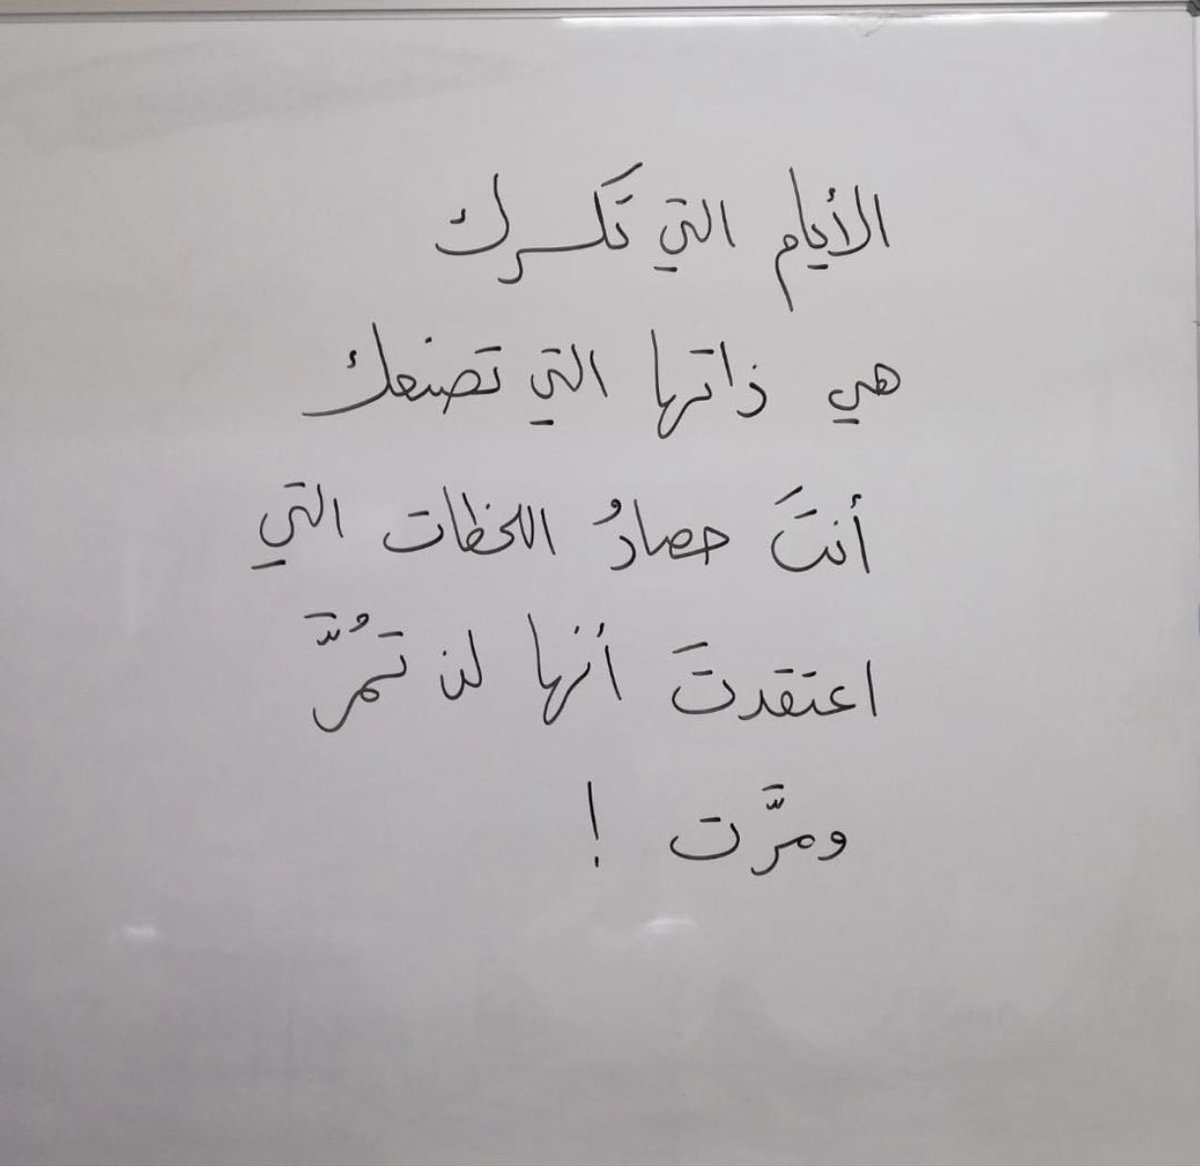 الأيام التي تكسرك
هي ذاتها التي تصنعك
أنتَ حصادُ اللحظات التي
اعتقدتَ أنها لن تمُرَّ
ومرَّت !